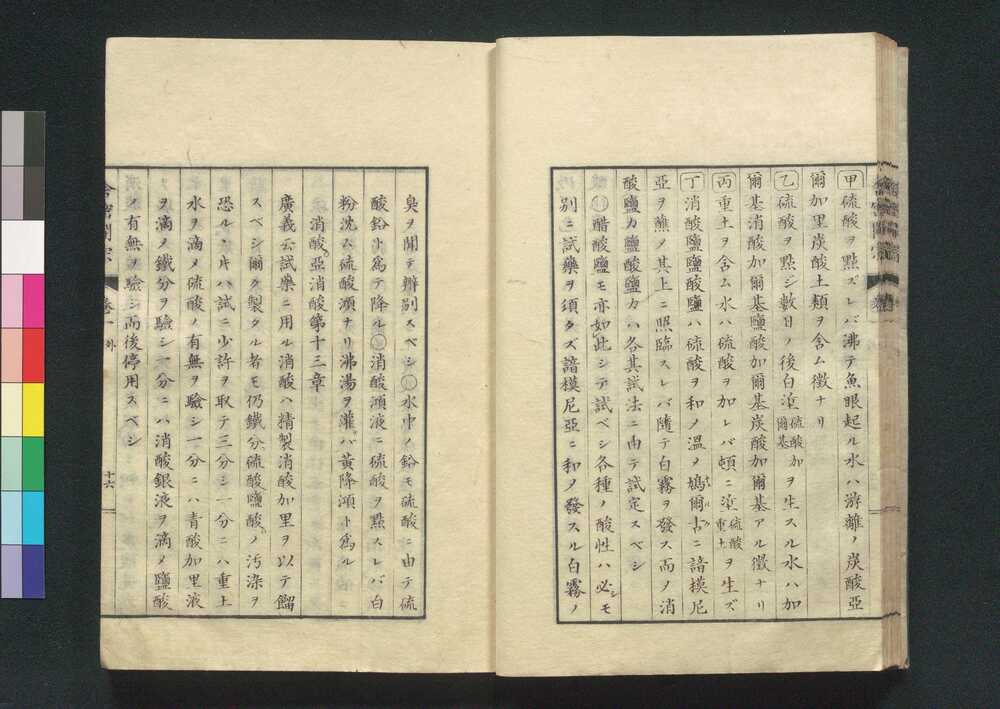 甲硫酸ヲ點ズレバ沸テ魚眼起ル水ハ游離ノ炭酸亞
爾加里炭酸土類ヲ含ム徵ナリ
乙硫酸ヲ點シ數日ノ後白渣硫酸加爾基ヲ生スル水ハ加
爾基消酸加爾基鹽酸加爾基炭酸加爾基アル徵ナリ
丙重土ヲ含ム水ハ硫酸ヲ加レバ頓ニ渣硫酸重土ヲ生ズ
丁消酸鹽鹽酸鹽ハ硫酸ヲ和ノ溫メ鳩爾古ニ諳模尼
亞ヲ蘸ノ其上ニ照臨スレバ隨テ白霧ヲ發ス而ノ消
酸鹽カ鹽酸鹽カハ各其試法ニ由テ試定スベシ
醋酸鹽モ亦如此シテ試ベシ各種ノ酸性ハ必シモ
別ニ試藥ヲ須タズ諳模尼亞ニ和ノ發スル白霧ノ
臭ヲ聞テ辨別スベシ水中ノ鉛モ硫酸ニ由テ硫
酸鉛ト爲テ降ル消酸澒液ニ硫酸ヲ點スレバ白
粉沈ム硫酸澒ナリ沸湯ヲ灌バ黃降澒ト爲ル
消酸亞消酸第十三章
廣義云試藥ニ用ル消酸ハ精製消酸加里ヲ以テ餾
スベシ爾ク製タル者モ仍鐵分硫酸鹽酸ノ汚染ヲ
恐ル丶片ハ試ニ少許ヲ取テ三分シ一分ニハ重土
水ヲ滴メ硫酸ノ有無ヲ驗シ一分ニハ青酸加里液
ヲ滴メ鐵分ヲ驗シ一分ニハ消酸銀液ヲ滴メ鹽酸
ノ有無ヲ驗シ而後停用スベシ
舍密開宗
卷一
外
十六